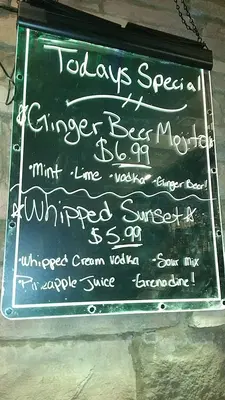 Todays Special
Ginger Beer Mojito
$6.99
•Mint •Lime •Vodka •Ginger Beer!
Whipped Sunset
$5.99
•Whipped Cream Vodka •Sour Mix
Pineapple Juice •Grenadine!